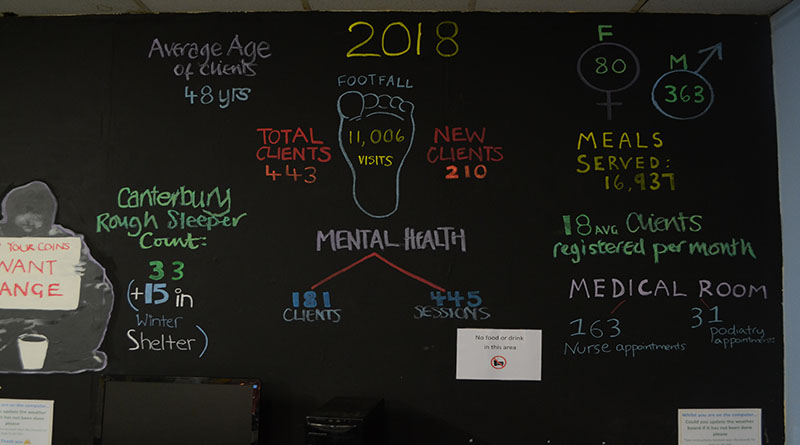 2018
Average Age
of clients
48 yrs
FOOTFALL
11,006
VISITS
TOTAL
CLIENTS
443
NEW
CLIENTS
210
F
80
M
363
MEALS
SERVED:
16,937
Canterbury
Rough Sleeper
Count:
33
(+15 in
Winter
Shelter)
MENTAL HEALTH
181
CLIENTS
445
SESSIONS
18 AVG Clients
registered per month
MEDICAL ROOM
163
Nurse appointments
31
podiatry
appointments
YOUR COINS
WANT
ANGE
No food or drink
in this area
Whilst you are on the computer...
Could you update the weather
board if it has not been done
please
you are on the computer...
update the weather
it has not been done
please
Thank you